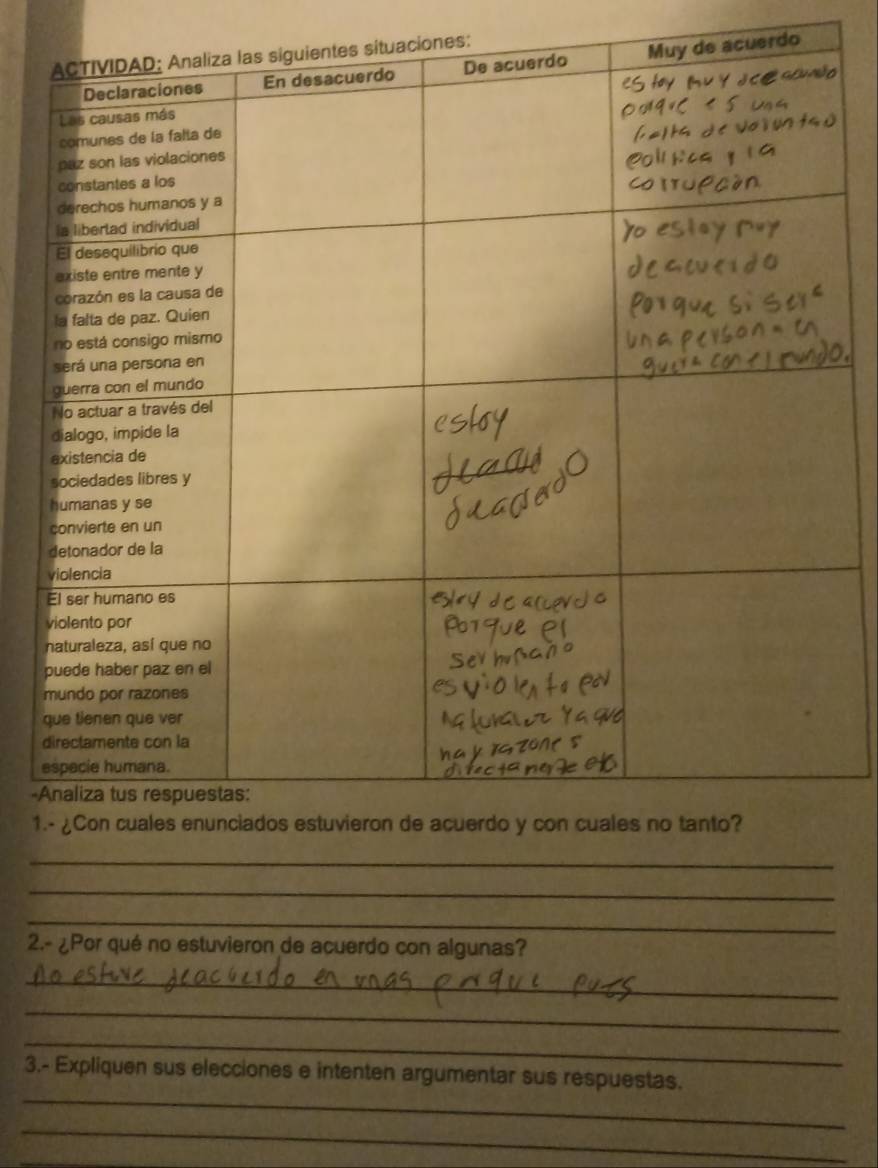 ACTIVIDAD: Analiza las siguientes situaciones:
Declaraciones En desacuerdo De acuerdo Muy de acuerdo
Las causas más
comunes de la falta de
paz son las violaciones
constantes a los
derechos humanos y a
la libertad individual
estoy muy de acuerdo
porque es una
falta de voluntad
política y la
corrupción
El desequilibrio que
existe entre mente y
corazón es la causa de
la falta de paz. Quien
no está consigo mismo
será una persona en
guerra con el mundo
yo estoy muy
deacuerdo
Porque si sera
una persona en
guerra con el mundo.
No actuar a través del
dialogo, impide la
existencia de
sociedades libres y
humanas y se
convierte en un
detonador de la
violencia
estoy
deacuerdo
El ser humano es
violento por
naturaleza, así que no
puede haber paz en el
mundo por razones
que tienen que ver
directamente con la
especie humana.
estoy de acuerdo
Porque el
ser humano
es violento por
naturaleza ya que
hay razones
directamente
-Analiza tus respuestas:
1.- ¿Con cuales enunciados estuvieron de acuerdo y con cuales no tanto?
2.- ¿Por qué no estuvieron de acuerdo con algunas?
No estuve deacuerdo en unas porque pues
3.- Expliquen sus elecciones e intenten argumentar sus respuestas.